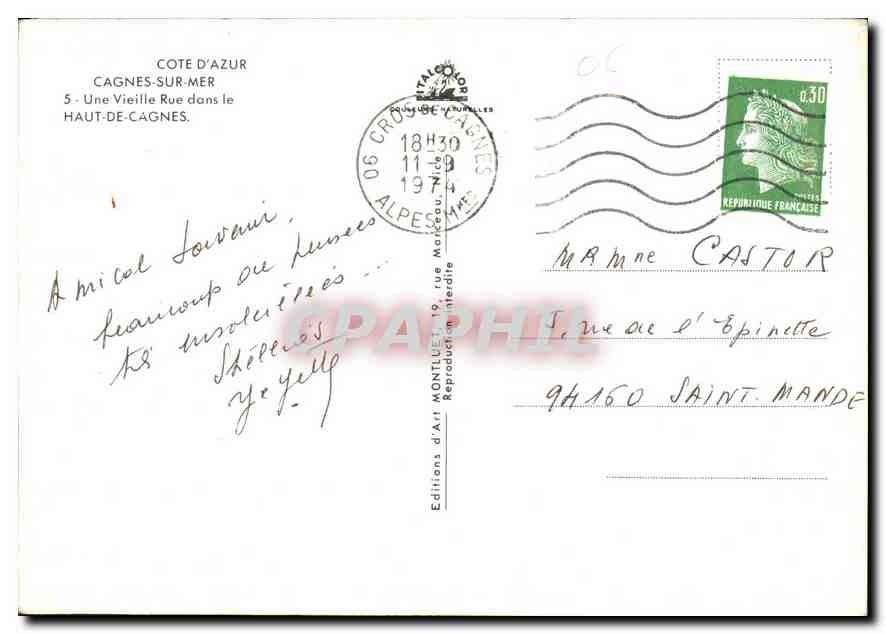 COTE D'AZUR
CAGNES-SUR-MER
5 - Une Vieille Rue dans le
HAUT-DE-CAGNES.
ITALCOLOR
COULEURS NATURELLES
06 CROS DE CAGNES
18H30
11-9
1974
ALPES Mmes
0,30
POSTES
REPUBLIQUE FRANÇAISE
Amical Souvenir,
beaucoup de pensées
très ensoleillées...
Yzyette
Editions d'Art MONTLUET, 19, rue Marceau, Nice
Reproduction interdite
MR Mme CASTOR
5, rue de l'Epinette
94160 SAINT-MANDE
CPAPHIL